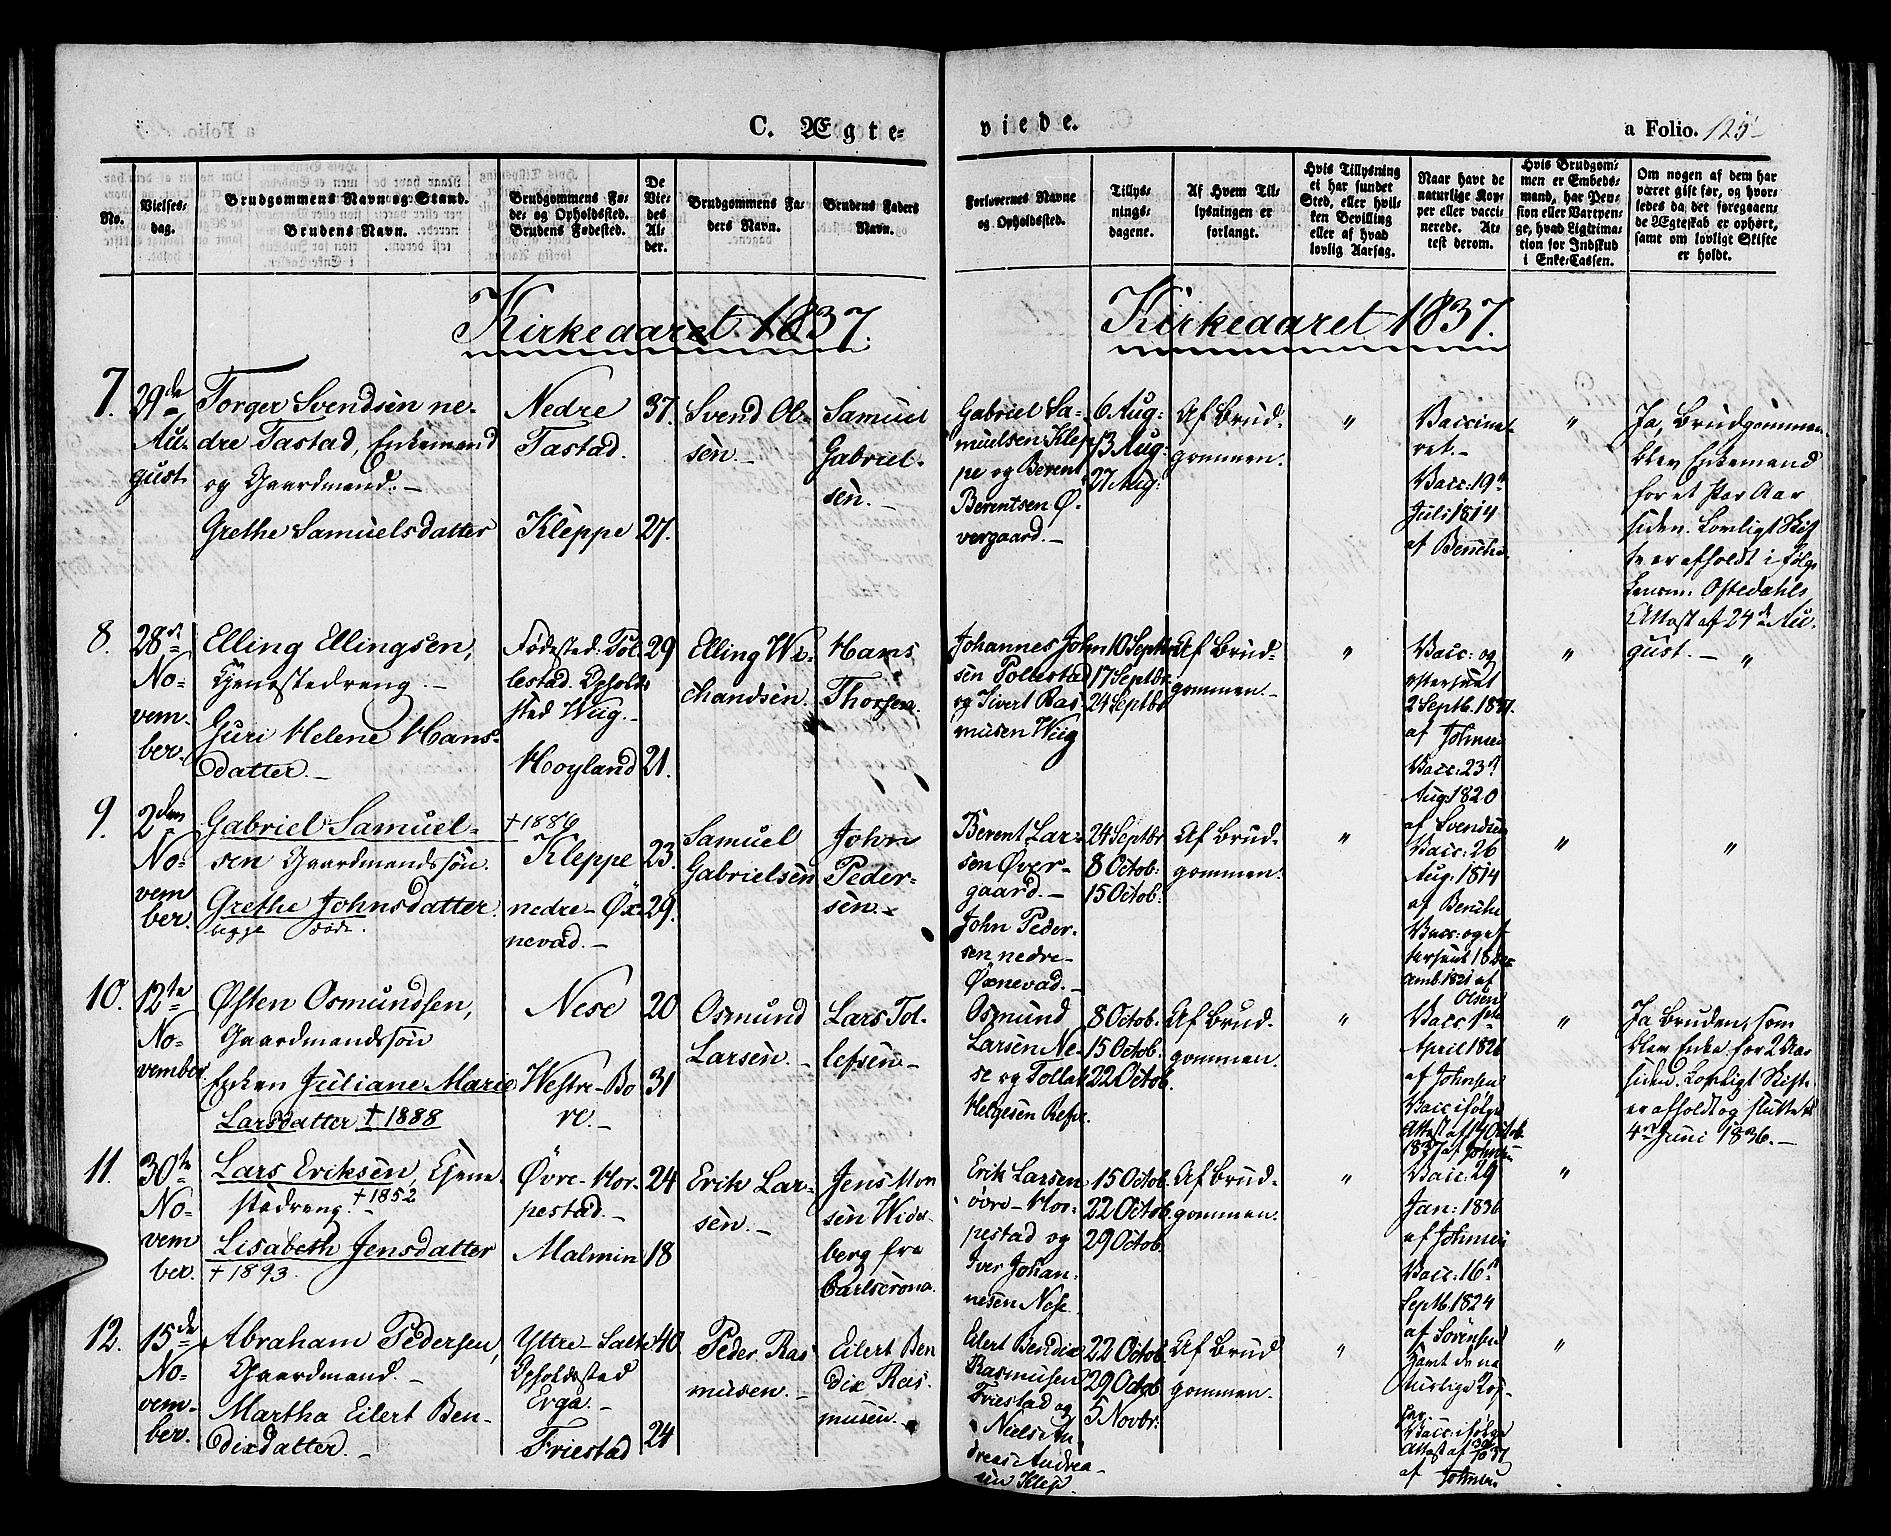 C. Ægte-
viede.
a Folio. 125
No.
Vielses-
dag.
Brudgommens Navn og Stand.
Brudens Navn.
Brudgommens Fø-
de- og Opholdssted.
Brudens Fødested.
De
Vie-
des
Al-
der.
Brudgommens Fa-
ders Navn.
Brudens Faders
Navn.
Forlovernes Navne
og Opholdssted.
Tillys-
nings-
dagene.
Af Hvem Til-
lysningen er
forlangt.
Hvis Tillysning
ei har fundet
Sted, eller hvil-
ken Bevilling
eller af hvad
lovlig Aarsag.
Naar havt de
naturlige Kop-
per eller vacci-
nerede. At-
test derom.
Hvis Brudgom-
men er Embeds-
mand, har Pen-
sion eller Vartpen-
ge, hvad Ligtrima-
tion for Indskud
i Enke-Cassen.
Om nogen af dem har
været gift før, og hvor-
ledes da det foregaaen-
de Ægteskab er ophørt,
samt om lovligt Skifte
er holdt.
Kirkeaaret 1837.
Kirkeaaret 1837.
7.
29de
Au-
gust
Torger Svendsen ne-
dre Tastad, Enkemand
og Gaardmand. -
Grethe Samuelsdatter
Nedre
Tastad.
Kleppe
37.
27.
Svend Ol-
sen. -
Samuel
Gabriel-
sen. -
Gabriel Sa-
muelsen Klep
pe og Berent
Berentsen Ø-
vergaard. -
6 Aug:
13 Aug:
27 Aug:
Af Brud-
gommen.
"
Vaccine-
ret. -
Vacc: 19de
Juli 1814
af Benche
"
Ja, Brudgommen
blev Enkemand
for et Par Aar
siden. Lovligt Skif
te er afholdt i følge
Lensm: Oftedahls
Attest af 24de Au-
gust. -
8.
28de
No-
vem-
ber.
Elling Ellingsen,
Tjenestedreng. -
Guri Helene Hans-
datter. -
Fødested: Tol
lestad. Opholds
sted Wiig. -
Hoyland
29
21.
Elling Wi-
chandsen.
Hans
Thorsen.
Johannes John
sen Pollestad
og Sivert Ras
musen Wiig
10 Septbr
17 Septbr.
24 Septbr
Af Brud-
gommen. -
"
Vacc: og
efterseet
2 Septb. 1837.
af Johnsen
Vacc: 23de
Aug: 1820
af Svendsen
"
"
9.
2den
No-
vem
ber.
Gabriel Samuel-
sen Gaardmandssøn.
Grethe Johnsdatter.
begge døde.
+ 1889
Kleppe
nedre - Øx-
nevad. -
23.
29.
Samuel
Gabrielsen
John
Peder-
sen. -
Berent Lar-
sen Øver-
gaard. -
John Peder-
sen nedre -
Øxnevad. -
24 Septbr
8 Octob:
15 Octob:
Af Brud-
gommen.
"
Vacc: 26
Aug: 1814
af Benche
Vacc: og ef-
terseet
1821 af
Olsen
"
"
10.
12te
No-
vember
Østen Osmundsen,
Gaardmandssøn
Enken Juliane Marie
Larsdatter + 1888
Nese
Westre - Bo
re. -
20
31
Osmund
Larsen. -
Lars Tol-
lefsen -
Osmund
Larsen Ne-
se og Tollak
Helgesen Refve
8 Octob.
15 Octob.
22 Octob.
Af Brud-
gommen.
"
Vacc: 1ste
April 1826
af Johnsen
Vacc: ifølge
Attest af 7 Octob.
1837 af Johnsen
"
Ja Bruden, som
blev Enke for 2 Aar
siden. Lovligt Skifte
er afholdt og sluttet
4de Juni 1836. -
11.
30te
No-
vem
ber.
Lars Eriksen, Tjene-
stedreng. + 1852
Lisabeth Jensdatter
+ 1893.
Øvre - Hor-
pestad. -
Malmin
24
18
Erik Lar-
sen. -
Jens Mon
sen Wider-
berg fra
Carlscrona.
Erik Larsen
øvre - Hor-
pestad og
Iver Johan-
nesen Nese
15 Octob.
22 Octob.
29 Octob.
Af Brud-
gommen.
"
Vacc: 29
Jan: 1836
af Johnsen
Vacc: 16de
Septb. 1824
af Sørensen
"
12.
15de
No-
vem-
ber.
Abraham Pedersen,
Gaardmand. -
Martha Eilert Ben-
dixdatter. -
Ytre - Salte
Opholdssted
Erga. -
Friestad
40.
24
Peder Ras
musen. -
Eilert Ben
dix Ras-
musen. -
Eilert Bendix
Rasmusen
Friestad og
Niels An
dreas Andrea-
sen Klep.
22 Octob.
29 Octob
5 Novbr.
Af Brud
gommen.
"
Havt de na
turlige Kop-
per.
Vacc: ifølge
Attest af
af Johnsen
"